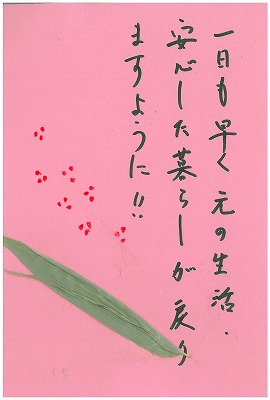 一日も早く元の生活、
安心した暮らしが戻り
ますように!!